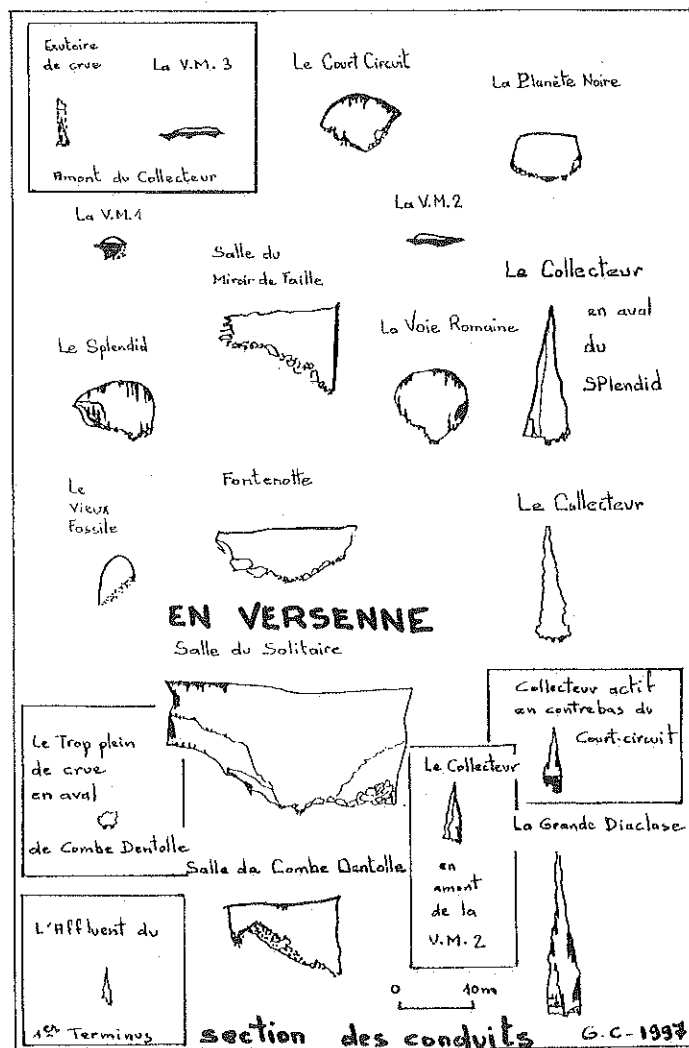 Exutoire
de crue
La V.M. 3
Amont du Collecteur
Le Court Circuit
La Planète Noire
La V.M.1
La V.M.2
Salle du
Miroir de Faille
Le Collecteur
en aval
du
SPlendid
Le Splendid
La Voie Romaine
Le
Vieux
Fossile
Fontenotte
Le Collecteur
EN VERSENNE
Salle du Solitaire
Collecteur actif
en contrebas du
Court-circuit
Le Trop plein
de crue
en aval
de Combe Dentolle
Le Collecteur
en
amont
de la
V.M.2
La Grande Diaclase
Salle de Combe Dentolle
L'Affluent du
1er Terminus
0 10m
section des conduits
G.C-1997